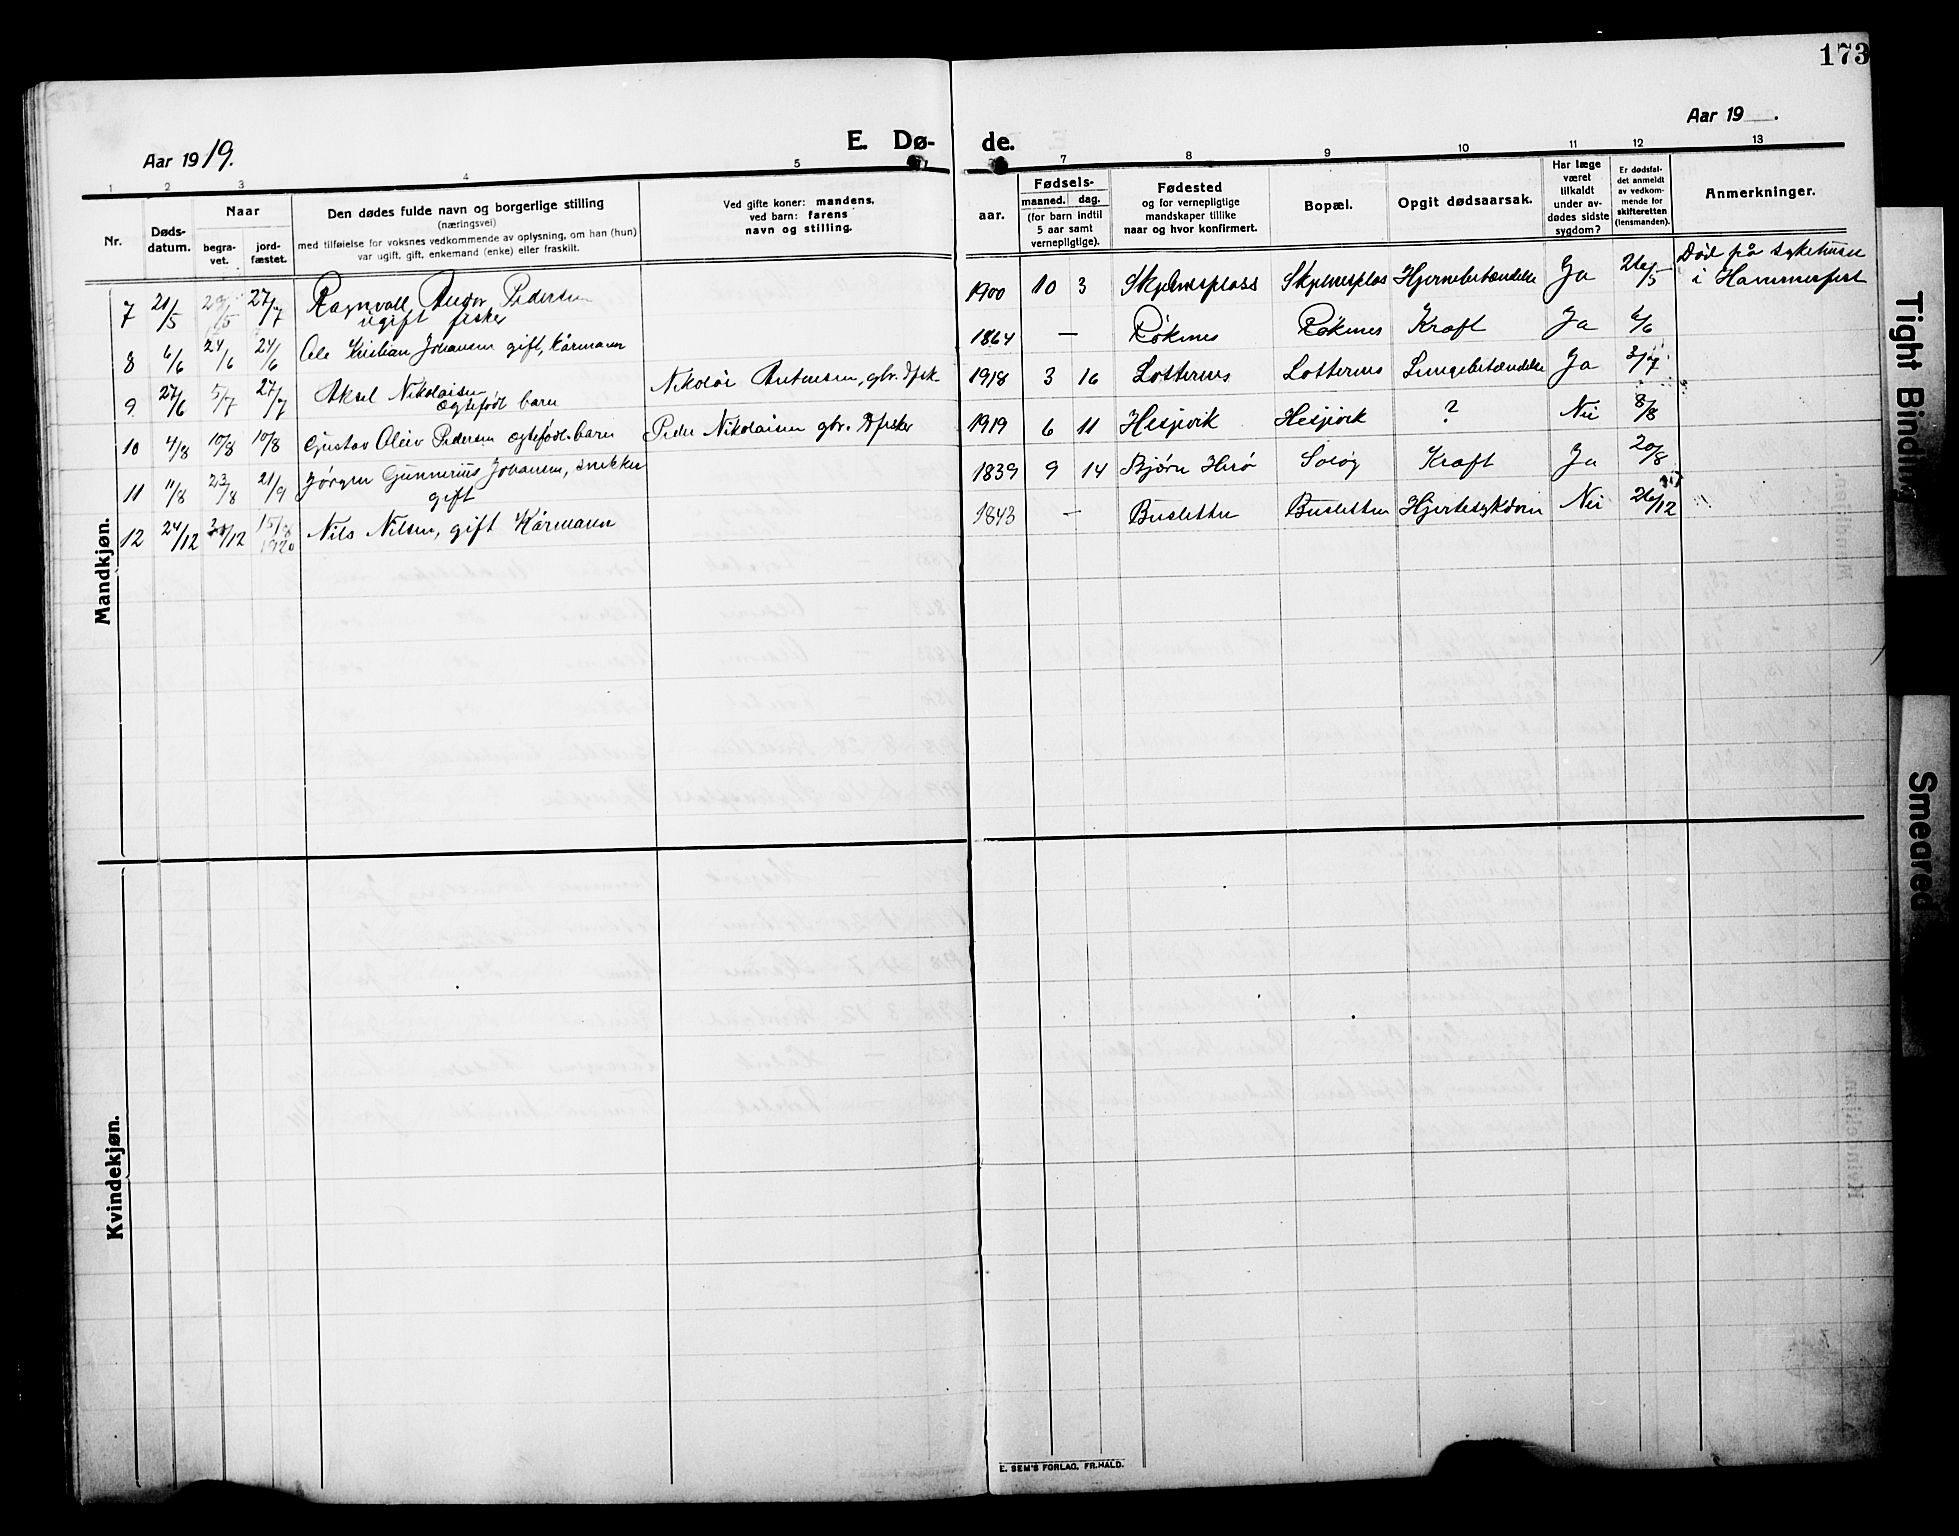 173
Aar 1919.
E. Dø-
de.
Aar 19 .
1 2 3 4 5 7 8 9 10 11 12 13
Nr.
Døds-
datum.
Naar
begra-
vet.
jord-
fæstet.
Den dødes fulde navn og borgerlige stilling
(næringsvei)
med tilføielse for voksnes vedkommende av oplysning, om han (hun)
var ugift, gift, enkemand (enke) eller fraskilt.
Ved gifte koner: mandens,
ved barn: farens
navn og stilling.
aar.
Fødsels-
maaned. dag.
(for barn indtil
5 aar samt
vernepligtige).
Fødested
og for vernepligtige
mandskaper tillike
naar og hvor konfirmert.
Bopæl.
Opgit dødsaarsak.
Har læge
været
tilkaldt
under av-
dødes sidste
sygdom?
Er dødsfal-
det anmeldt
av vedkom-
mende for
skifteretten
(lensmanden).
Anmerkninger.
Mandkjøn.
7 21/5 29/5 27/7 Ragnvall Andor Pedersen ugift fisker 1900 10 3 Skjelnesplass Skjelnesplas Hjernebetændelse Ja 26/5 Død på sykehuset i Hammerfest
8 6/6 24/6 24/6 Ole Kristian Johansen gift, kårmann 1864 — Røknes Røknes Kræft Ja 6/6
9 27/6 5/7 27/7 Aksel Nikolaisen ægtefødt barn Nikolai Antonsen, gbr. & fisk. 1918 3 16 Lotternes Lotternes Lungebetændelse Ja 3/7
10 4/8 10/8 10/8 Gustav Oleiv Pedersen ægtefødt barn Peder Nikolaisen gbr. & fisker 1919 6 11 Hesjevik Hesjevik ? Nei 8/8
11 11/8 23/8 21/9 Jørgen Gunnerius Johansen, snekker gift 1839 9 14 Bjørn Herø Soløy Kræft Ja 20/8
12 24/12 /12 15/8 1920 Nils Nilsen, gift Kårmann 1843 — Busletten Busletten Hjertesykdom Nei 26/12
Kvindekjøn.
E. SEM'S FORLAG, FR.HALD.
Tight Binding
Smeared